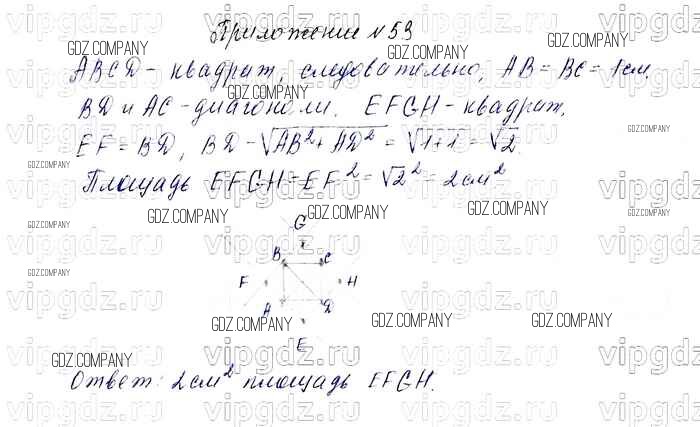 Приложение №53
ABCD - квадрат, следовательно, AB = BC = 1 см.
BD и AC - диагонали. EFGH - квадрат.
EF = BD, BD - √AB² + AD² = √1+1 = √2.
Площадь EFGH = EF² = √2² - 2 см²
G
B C
F H
A D
E
Ответ: 2 см² площадь EFGH.
GDZ.COMPANY
vipgdz.ru